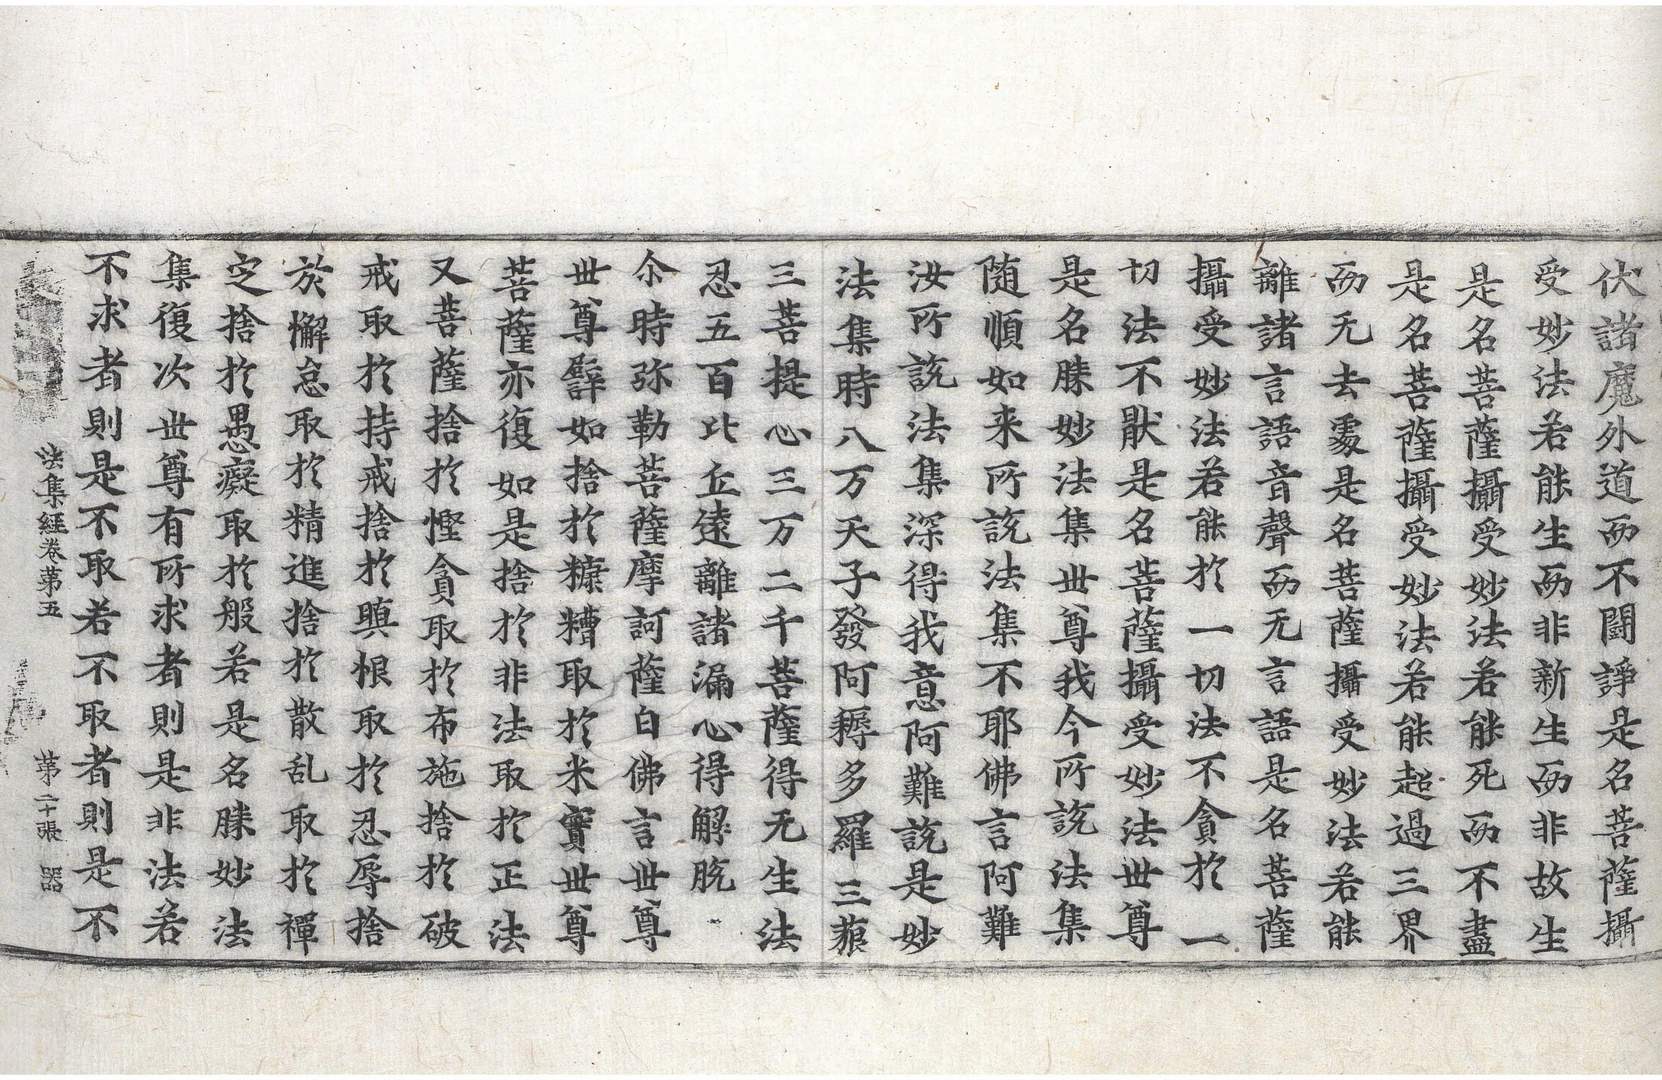 伏諸魔外道而不鬪諍是名菩薩攝
受妙法若能生而非新生而非故生
是名菩薩攝受妙法若能死而不盡
是名菩薩攝受妙法若能超過三界
而无去處是名菩薩攝受妙法若能
離諸言語音聲而无言語是名菩薩
攝受妙法若能於一切法不貪於一
切法不猒是名菩薩攝受妙法世尊
是名勝妙法集世尊我今所說法集
随順如来所說法集不耶佛言阿難
汝所說法集深得我意阿難說是妙
法集時八万天子發阿耨多羅三藐
三菩提心三万二千菩薩得无生法
忍五百比丘遠離諸漏心得解脫
尒時弥勒菩薩摩訶薩白佛言世尊
世尊譬如捨於糠糟取於米實世尊
菩薩亦復如是捨於非法取於正法
又菩薩捨於慳貪取於布施捨於破
戒取於持戒捨於瞋恨取於忍辱捨
於懈怠取於精進捨於散乱取於禪
定捨於愚癡取於般若是名勝妙法
集復次世尊有所求者則是非法若
不求者則是不取若不取者則是不
法集経卷苐五 苐二十張 器